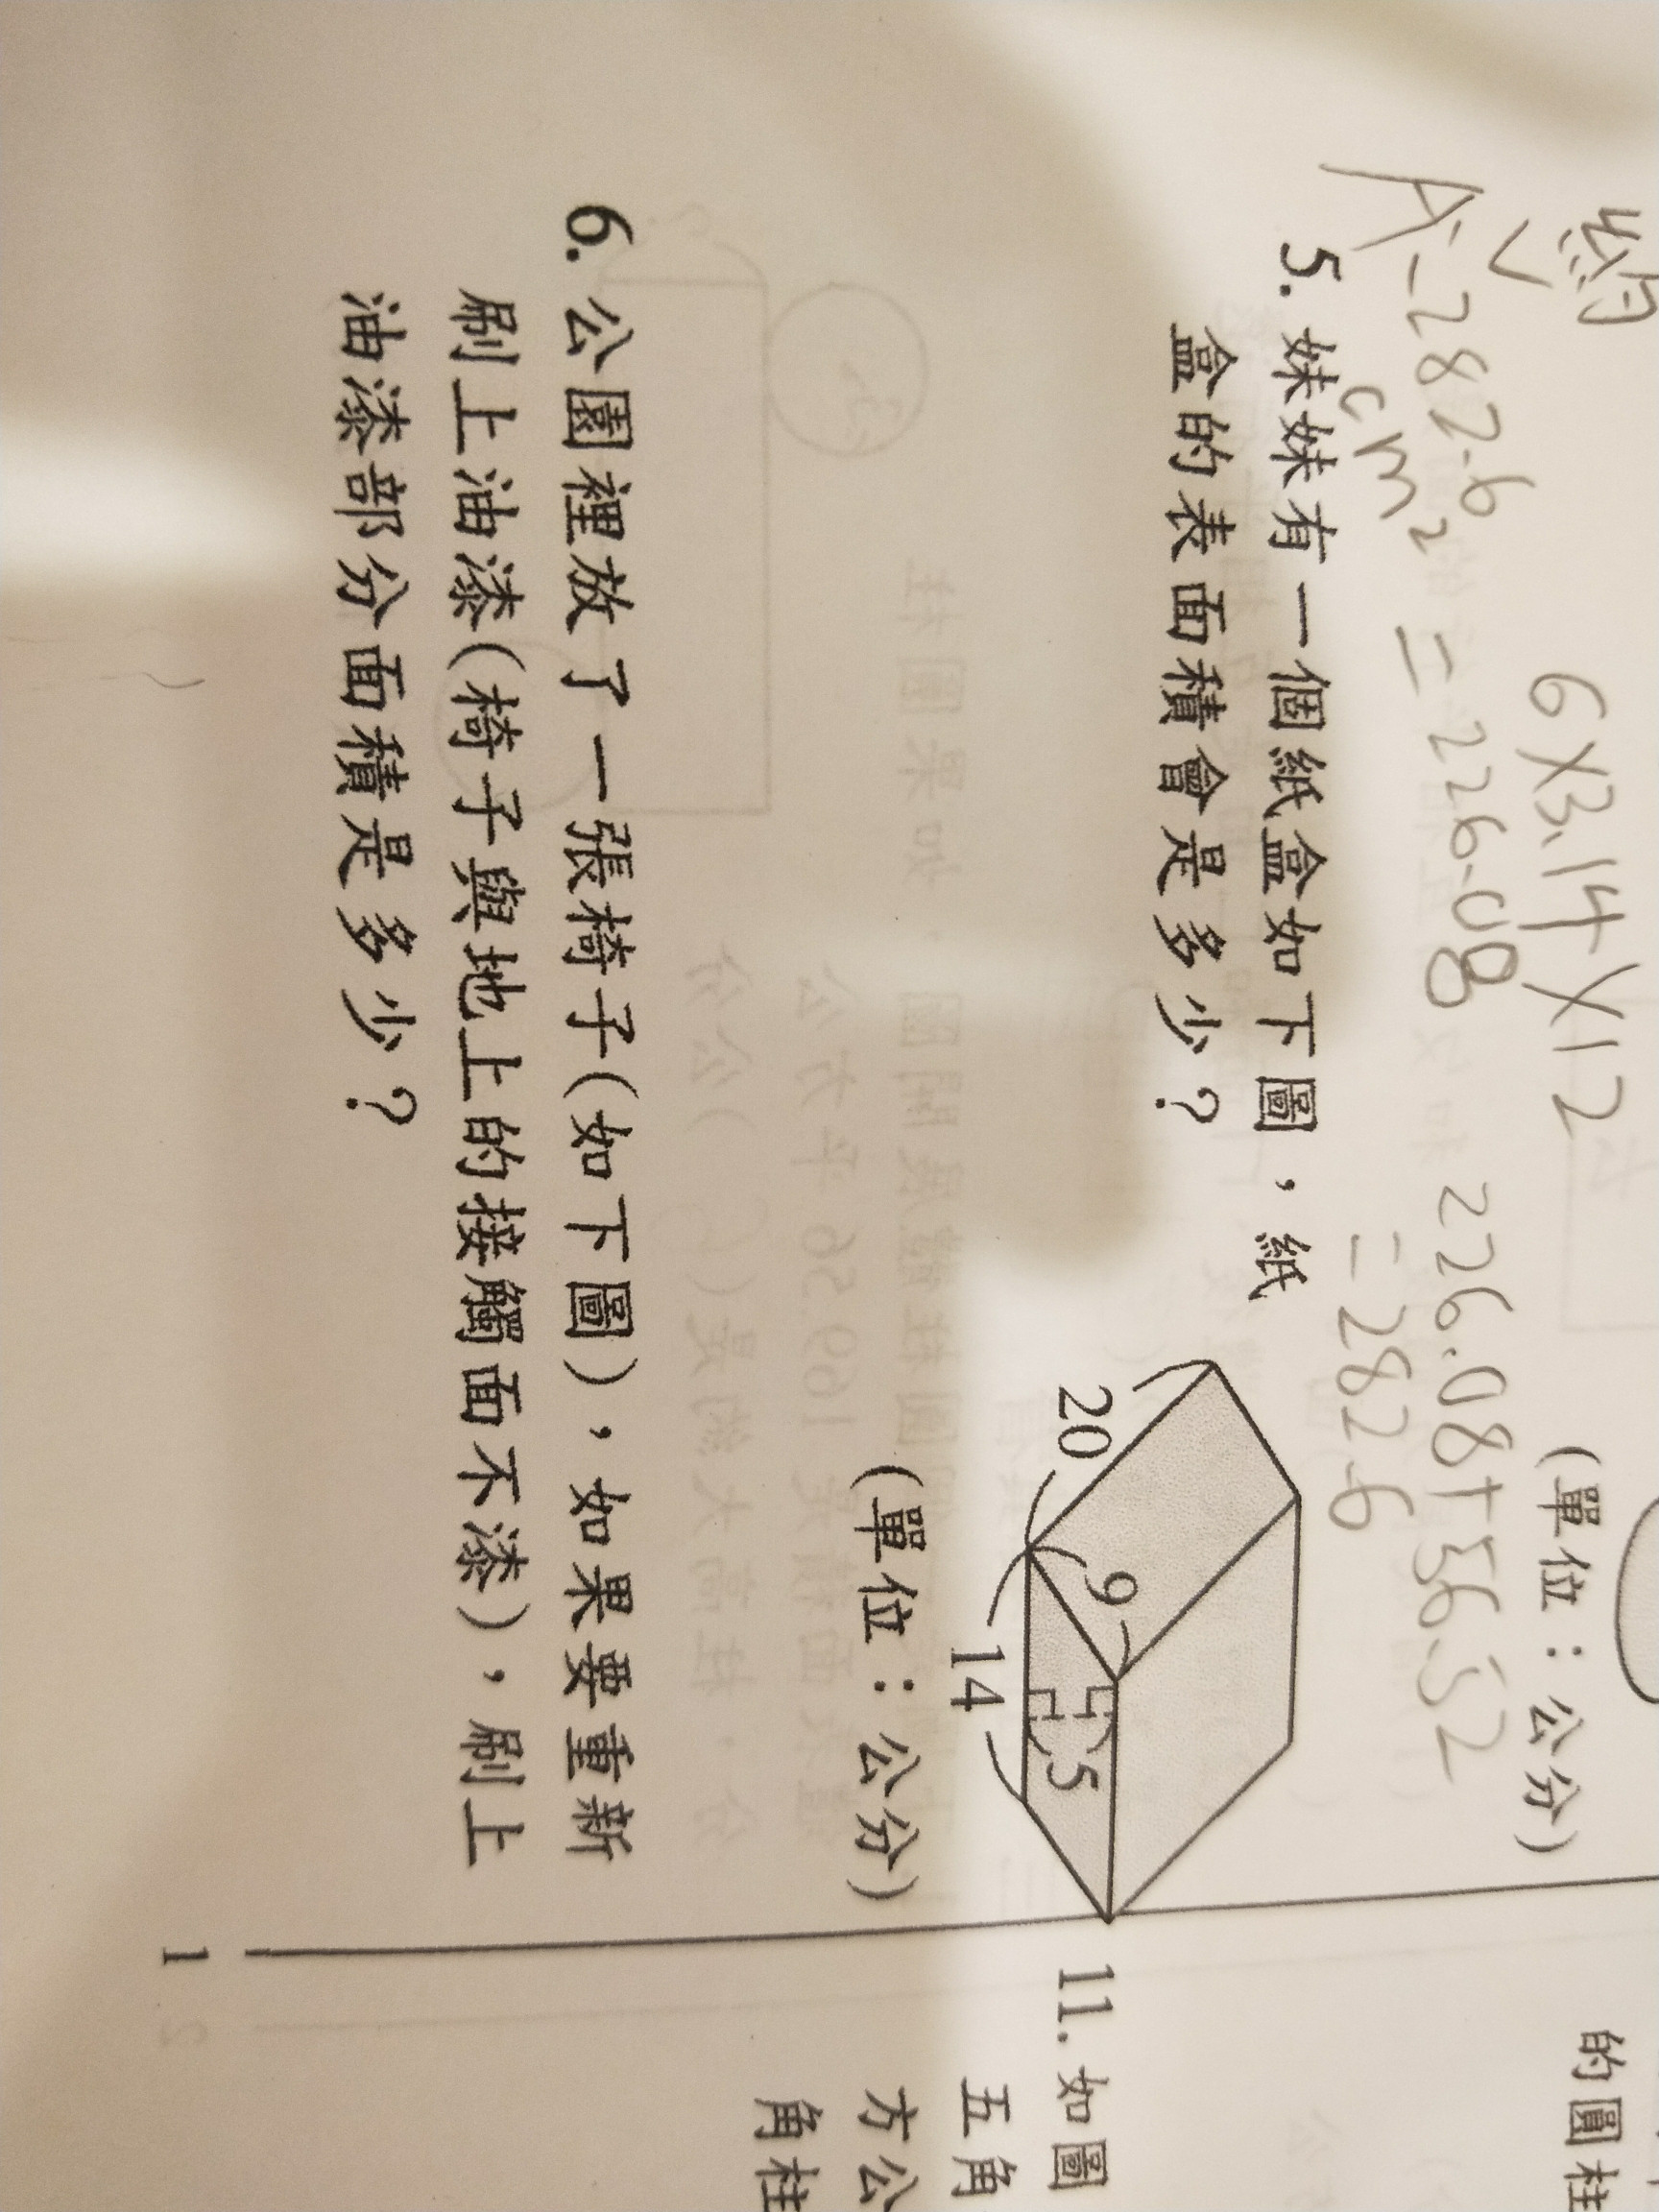 約
6×3.14×12
A-282.6
cm²
=226.08
226.08+56.52
=282.6
(單位：公分)
5. 妹妹有一個紙盒如下圖，紙
盒的表面積會是多少？
20
9
5
14
(單位：公分)
6. 公園裡放了一張椅子(如下圖)，如果要重新
刷上油漆(椅子與地上的接觸面不漆)，刷上
油漆部分面積是多少？
1
的圓柱
11. 如圖
五角
方公
角柱